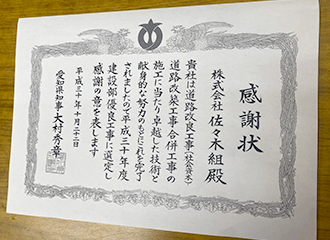 感謝状
株式会社 佐々木組 殿
貴社は道路改良工事(社会資本)
道路改築工事合併工事の
施工に当たり卓越した技術と
献身的な努力のもとにこれを完了
されましたので平成三十年度
建設部優良工事に選定し
感謝の意を表します
平成三十年十月二十二日
愛知県知事 大村秀章